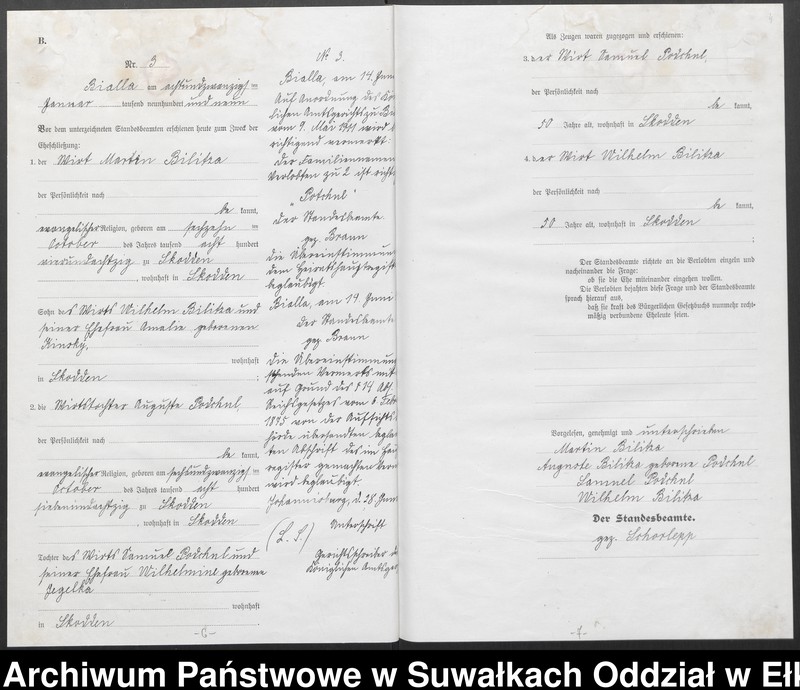 B.
Nr. 3
Bialla am achtundzwanzigsten
Januar tausend neunhundert und neun
Vor dem unterzeichneten Standesbeamten erschienen heute zum Zweck der
Eheschließung:
1. der Wirt Martin Bilitza
der Persönlichkeit nach
be kannt,
evangelischer Religion, geboren am sechzehnten
October des Jahres tausend acht hundert
vierundachtzig zu Skodden
, wohnhaft in Skodden
Sohn des Wirts Wilhelm Bilitza und
seiner Ehefrau Amalie geborenen
Kinsky,
wohnhaft
in Skodden ;
2. die Wirtstochter Auguste Podchul,
der Persönlichkeit nach
be kannt,
evangelischer Religion, geboren am sechsundzwanzigsten
October des Jahres tausend acht hundert
siebenundachtzig zu Skodden
, wohnhaft in Skodden
Tochter des Wirts Samuel Podchul und
seiner Ehefrau Wilhelmine geborene
Jegelka
wohnhaft
in Skodden .
-6-
No 3.
Bialla, am 14. Juni
Auf Anordnung des Kö
lichen Amtsgerichts zu Bi
vom 9. Mai 1911 wird b
richtigend vermerkt:
Der Familiennamen
Verlobten zu 2 ist richt
"Potchul"
Der Standesbeamte
gez. Brann
Die Übereinstimmun
dem Heiratshauptregist
beglaubigt
Bialla, am 14 Juni
Der Standesbeamte
gez. Brann
Die Übereinstimmun
stehenden Vermerks mit
auf Grund des § 14 Abs
Reichsgesetzes vom 6. Febr
1875 von der Aufsichts
hörde übersandten beglau
ten Abschrift des im Hei
register gemachten Verm
wird beglaubigt.
Johannisburg, d. 28. Juni
(L. S.) Unterschrift
Gerichtsschreiber d
Königlichen Amtsger
Als Zeugen waren zugezogen und erschienen:
3. der Wirt Samuel Podchul,
der Persönlichkeit nach
be kannt,
50 Jahre alt, wohnhaft in Skodden
4. der Wirt Wilhelm Bilitza
der Persönlichkeit nach
be kannt,
50 Jahre alt, wohnhaft in Skodden
;
Der Standesbeamte richtete an die Verlobten einzeln und
nacheinander die Frage:
ob sie die Ehe miteinander eingehen wollen.
Die Verlobten bejahten diese Frage und der Standesbeamte
sprach hierauf aus,
daß sie kraft des Bürgerlichen Gesetzbuchs nunmehr recht-
mäßig verbundene Eheleute seien.
Vorgelesen, genehmigt und unterschrieben
Martin Bilitza
Auguste Bilitza geborene Podchul
Samuel Podchul
Wilhelm Bilitza
Der Standesbeamte.
gez. Schorlepp
-7-
Archiwum Państwowe w Suwałkach Oddział w Ełk